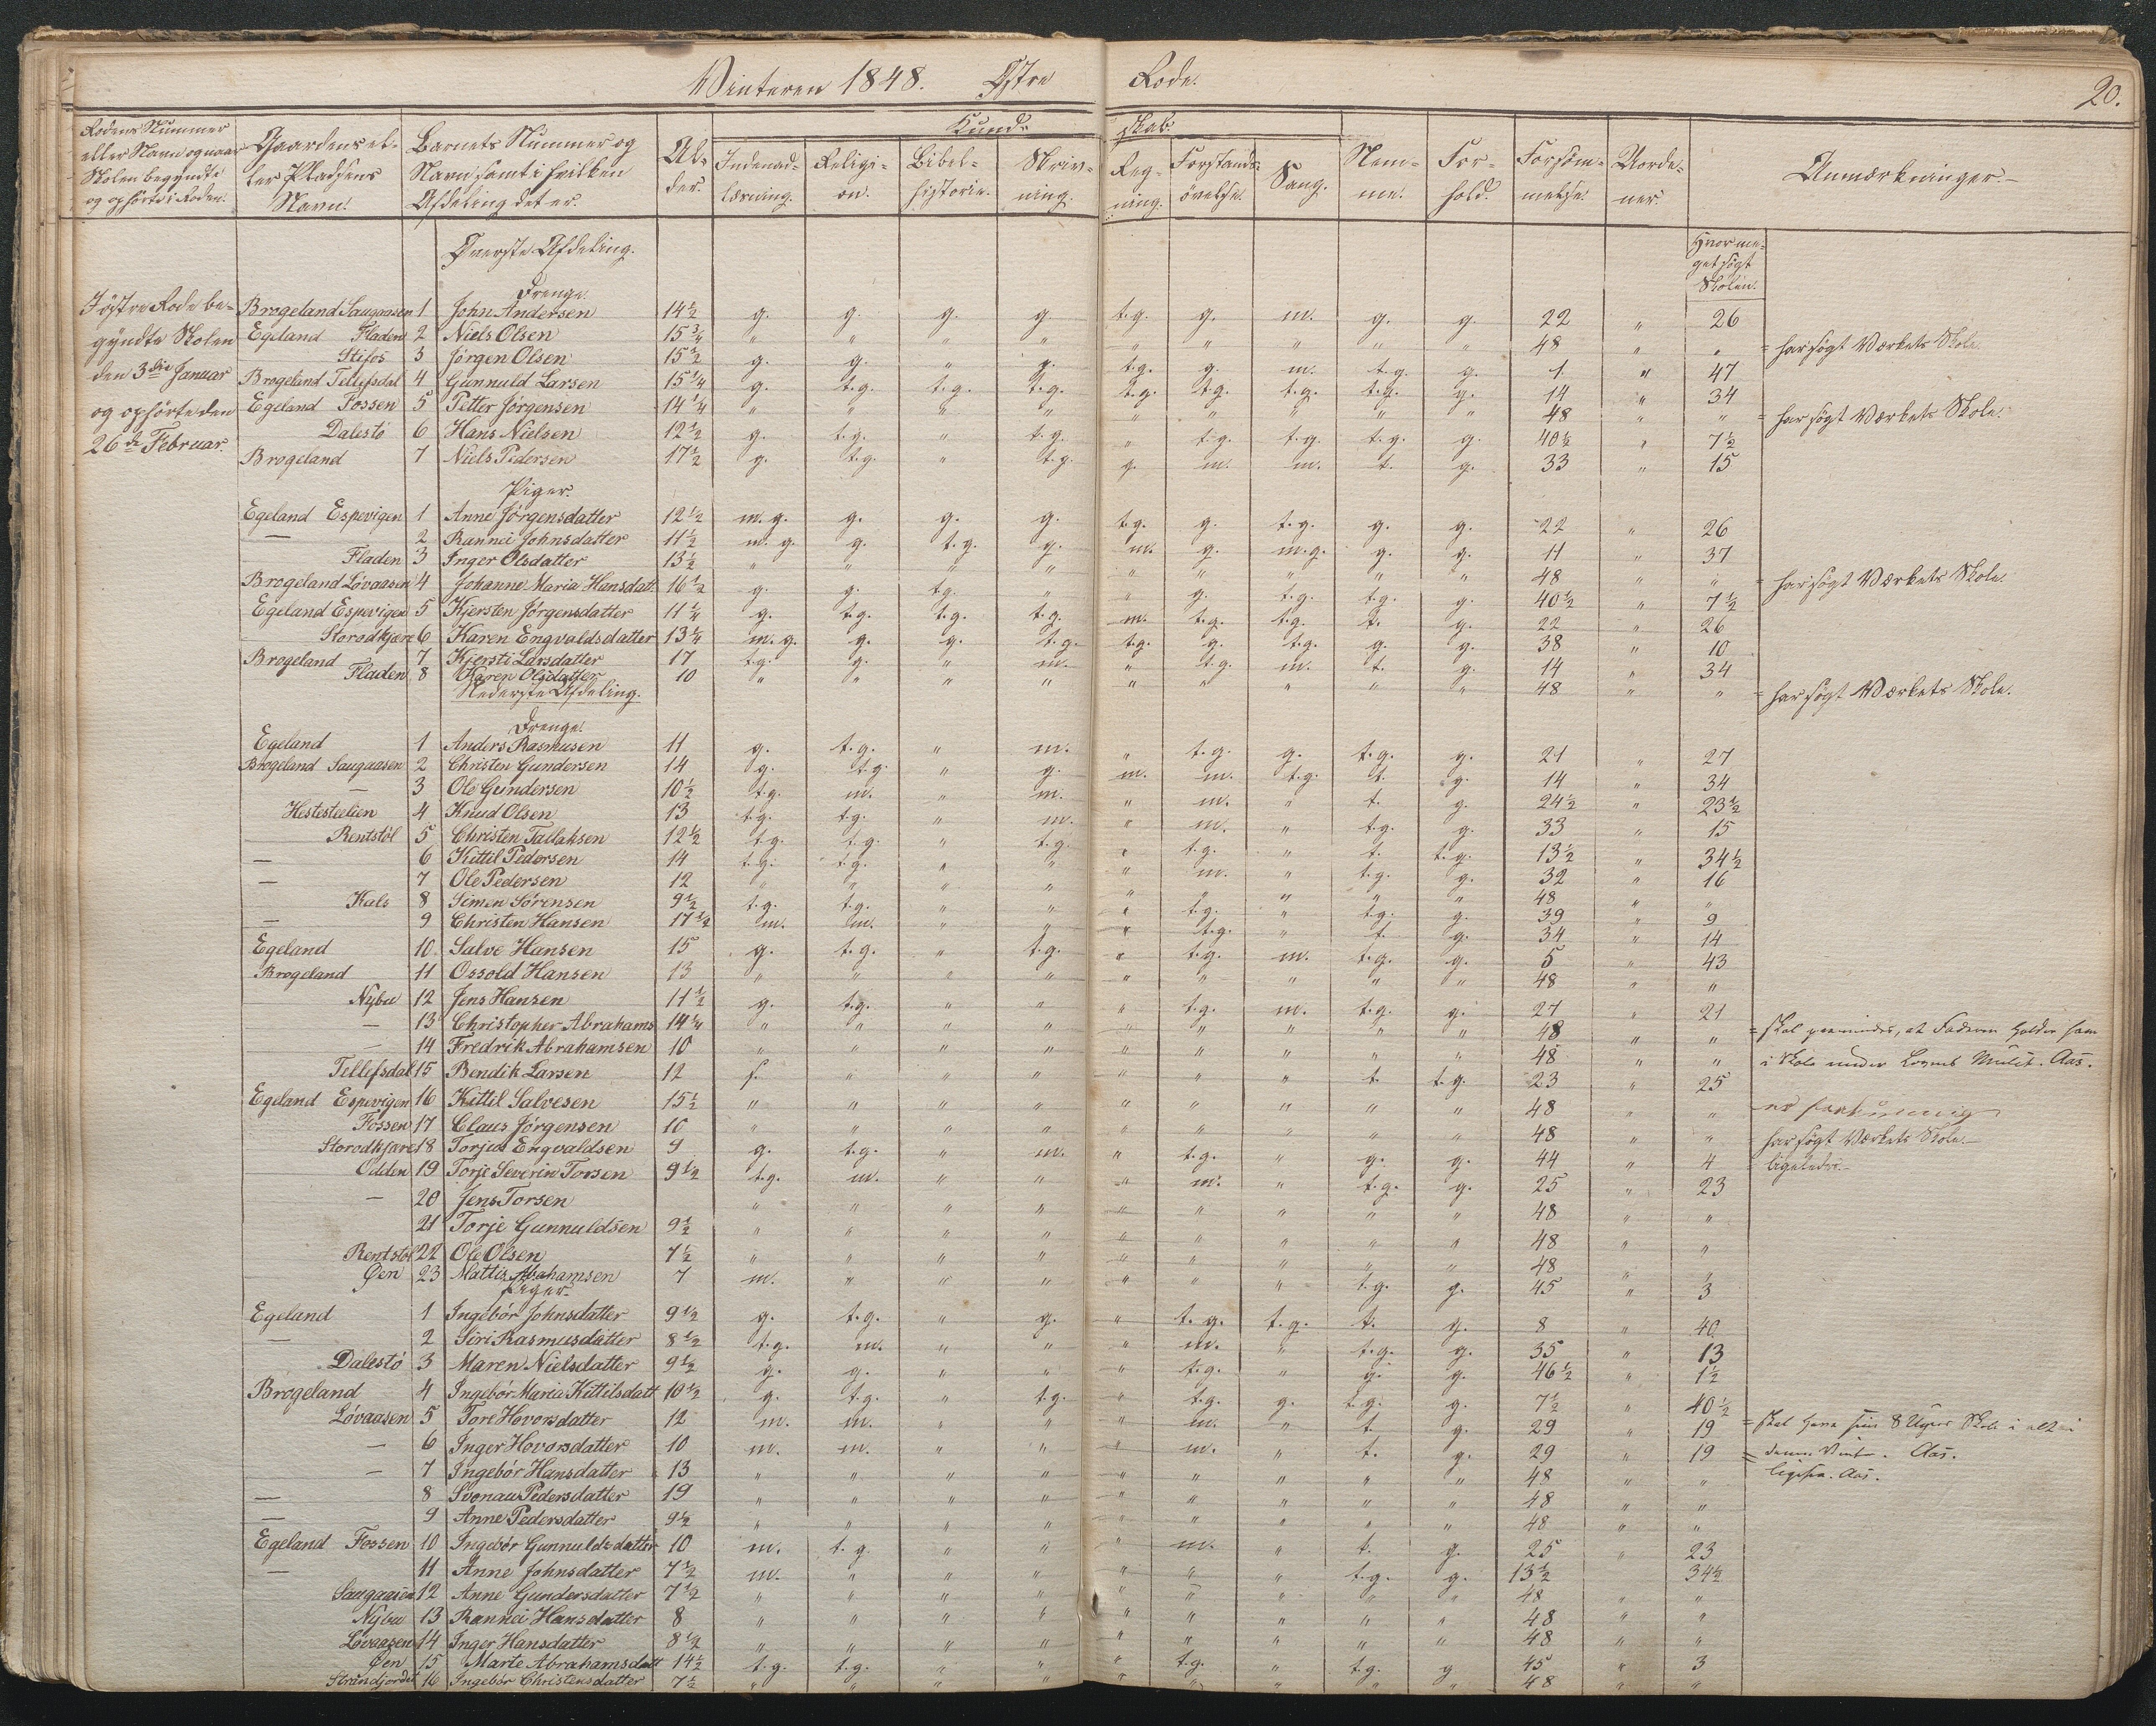 Vinteren 1848. Østre Rode. 20.
Rodens Nummer eller Navn og naar Skolen begyndte og ophørte i Roden. | Gaardens eller Pladsens Navn. | Barnets Nummer og Navn samt i hvilken Afdeling det er. | Alder. | Kundskab. | Indenadlæsning. | Religion. | Bibelhistorie. | Skrivning. | Regning. | Forstandsøvelse. | Sang. | Nemme. | Forhold. | Forsømmelse. | Uordener. | Anmærkninger.
Hvor meget søgt Skolen.
I østre Rode begyndte Skolen den 3die Januar og ophørte den 26de Februar.
Øverste Afdeling.
Drenge.
Brogeland Saugaasen 1 John Andersen 14½ g. g. g. g. t.g. g. m. g. g. 22 " 26
Egeland Fladen 2 Niels Olsen 15¾ " " " " " " " " " 48 " " = har søgt Værkets Skole.
Stifos 3 Jørgen Olsen 15½ g. g. " g. t.g. g. m. t.g. g. 1 " 47
Brogeland Tellefsdal 4 Gunnuld Larsen 15¼ g. t.g. t.g. t.g. t.g. t.g. t.g. t.g. g. 14 " 34
Egeland Fossen 5 Petter Jørgensen 14¼ " " " " " " " " " 48 " " = har søgt Værkets Skole.
Dalestö 6 Hans Nielsen 12½ g. t.g. " t.g. " t.g. t.g. t.g. g. 40½ " 7½
Brogeland 7 Niels Pedersen 17½ g. t.g. " t.g. g. m. m. t. g. 33 " 15
Piger.
Egeland Espevigen 1 Anne Jørgensdatter 12½ m.g. g. g. g. t.g. g. t.g. g. g. 22 " 26
— 2 Rannei Johnsdatter 11½ m.g. g. t.g. g. m. g. m.g. g. g. 11 " 37
Fladen 3 Inger Olsdatter 13½ " " " " " " " " " 48 " " = har søgt Værkets Skole.
Brogeland Lövaasen 4 Johanne Maria Hansdatt. 16½ g. g. t.g. " " g. t.g. t.g. g. 40½ " 7½
Egeland Espevigen 5 Kjersten Jørgensdatter 11¼ g. t.g. t.g. t.g. m. t.g. t.g. t. g. 22 " 26
Storodkjære 6 Karen Engvaldsdatter 13¼ m.g. g. g. t.g. t.g. g. t.g. g. g. 38 " 10
Brogeland 7 Kjersti Larsdatter 17 t.g. g. " m. " t.g. m. t. g. 14 " 34
Fladen 8 Karen Olsdatter 10 " " " " " " " " " 48 " " = har søgt Værkets Skole.
Nederste Afdeling.
Drenge.
Egeland 1 Anders Rasmusen 11 g. t.g. " m. " t.g. g. t.g. g. 21 " 27
Brogeland Saugaasen 2 Christen Gundersen 14 g. t.g. " g. m. m. t.g. t. g. 14 " 34
— 3 Ole Gundersen 10½ t.g. m. " m. " m. " t. g. 24½ " 23½
Hestesteelien 4 Knud Olsen 13 t.g. t.g. " m. " m. " t.g. g. 33 " 15
Rentstöl 5 Christen Tallaksen 12½ t.g. t.g. " t.g. " t.g. " t. t.g. 13½ " 34½
— 6 Kittil Pedersen 14 t.g. t.g. " " " m. " t.g. g. 32 " 16
— 7 Ole Pedersen 12 " " " " " " " " " 48 " "
Kals 8 Simen Sørensen 9½ t.g. t.g. " " " t.g. " t.g. g. 39 " 9
— 9 Christen Hansen 17½ m. m. " " " t.g. " t. g. 34 " 14
Egeland 10. Salve Hansen 15 g. t.g. " t.g. " t.g. m. t.g. g. 5 " 43
Brogeland 11 Ossold Hansen 13 " " " " " " " " " 48 " "
Nybu 12 Jens Hansen 11½ g. t.g. " " " t.g. m. t.g. g. 27 " 21
— 13 Christopher Abrahams 14¼ " " " " " " " " " 48 " " = skal paamindes, at Faderen holder ham
— 14 Fredrik Abrahamsen 10 " " " " " " " " " 48 " " i Skole under Lovens Mulct. Aas.
Tellefsdal 15 Bendik Larsen 12 f. " " " " " " t. t.g. 23 " 25
Egeland Espevigen 16 Kittil Salvesen 15½ " " " " " " " " " 48 " "
Fossen 17 Claus Jørgensen 10 " " " " " " " " " 48 " " = har søgt Værkets Skole.
Storodkjære 18 Torjus Engvaldsen 9 g. t.g. " m. " t.g. " g. g. 44 " 4 = ligeledes.
Odden 19 Torje Severin Torsen 9½ t.g. m. " " " m. " t.g. g. 25 " 23
— 20 Jens Torsen " " " " " " " " " 48 " "
21 Torje Gunnuldsen 9½ " " " " " " " " " 48 " "
Rentstöl 22 Ole Olsen 7½ " " " " " " " " " 48 " "
Øen 23 Mattis Abrahamsen 7 m. " " " " " " t.g. g. 45 " 3
Piger.
Egeland 1 Ingebór Johnsdatter 9½ g. t.g. " g. " t.g. t.g. t. g. 8 " 40
— 2 Siri Rasmusdatter 8½ t.g. m. " " " m. " t.g. g. 35 " 13
Dalestö 3 Maren Nielsdatter 9½ g. g. " " " t.g. " g. g. 46½ " 1½
Brogeland 4 Ingebór Maria Kittilsdatt 10½ g. t.g. " t.g. " t.g. g. t.g. g. 7½ " 40½
Lóvaasen 5 Tore Hovorsdatter 12 m. m. " " " m. " t. g. 29 " 19 = skal have sine 8 Uger Skole i alt i
— 6 Inger Hovorsdatter 10 m. m. " " " m. " t. g. 29 " 19 = denne Vinter. Aas.
— 7 Ingebór Hansdatter 13 " " " " " " " " " 48 " " ligesaa. Aas.
— 8 Svonau Pedersdatter 19 " " " " " " " " " 48 " "
— 9 Anne Pedersdatter 9½ " " " " " " " " " 48 " "
Egeland Fossen 10 Ingebór Gunnuldsdatter 10 m. t.g. " " " m. " t. g. 25 " 23
— 11 Anne Johnsdatter 7½ m. " " " " " " t.g. g. 13½ 34½
Saugaasen 12 Anne Gundersdatter 7½ " " " " " " " " " 48 " "
Nybu 13 Rannei Hansdatter 8 " " " " " " " " " 48 " "
Lóvaasen 14 Inger Hansdatter 8½ " " " " " " " " " 48 " "
Øen 15 Marte Abrahamsdatt 14½ t.g. t.g. " " " t.g. " t.g. g 45 " 3
Strandjordet 16 Ingebór Christensdatter 7½ " " " " " " " " " 48 " "